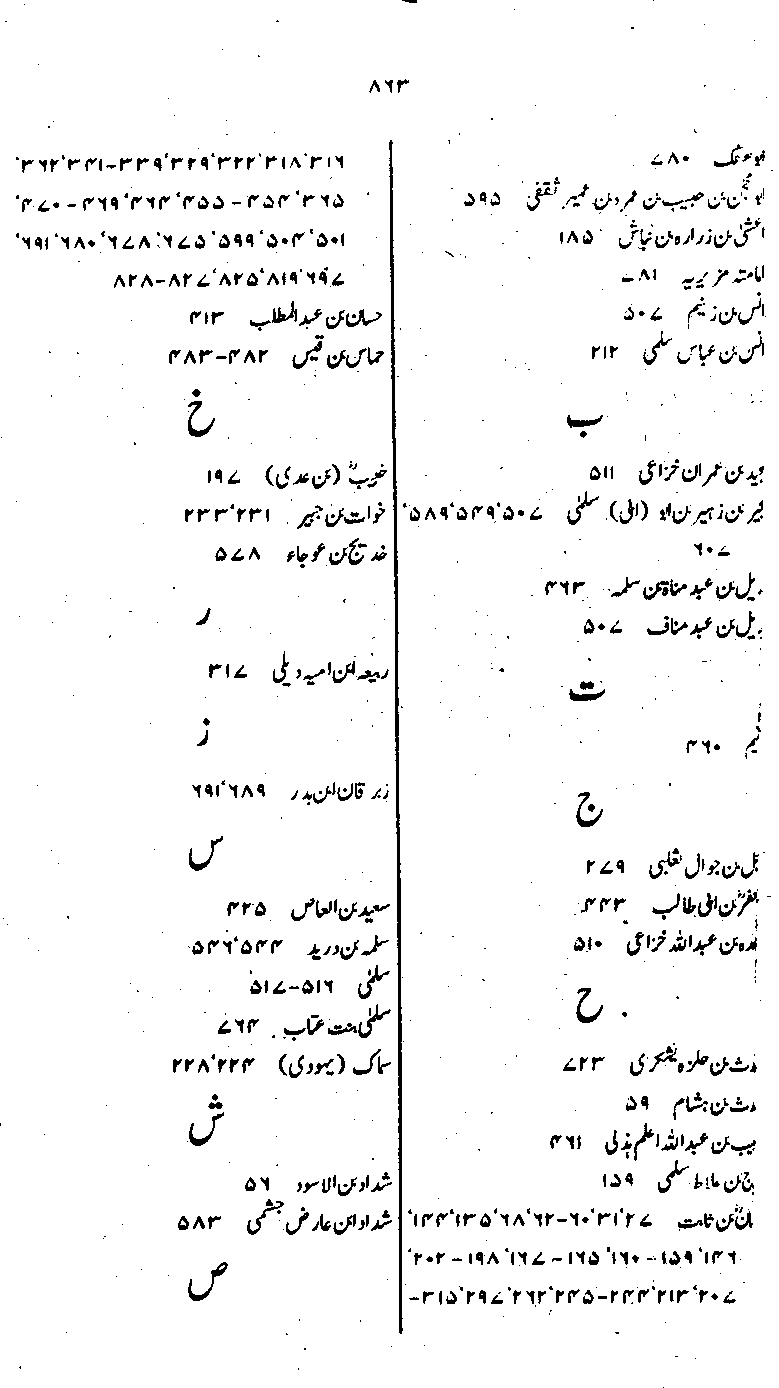 ۸۶۳
ابو عفک ۷۸۰
ابو محجنؓ بن حبیب بن عمرو بن عمیر ثقفی ۵۹۵
اعشیٰ بن زرارہ بن نباش ۱۸۵
امامتہ مزیریہ ۷۸۱
انس بن زنیم ۵۰۷
انس بن عباس سلمی ۲۱۲
ب
بن عمران خزاعی ۵۱۱
بن زہیر بن ابو (ابی) سلمٰی ۵۰۷، ۵۴۹، ۵۸۹،
۶۰۷
بن عبد مناۃ بن سلمہ ۴۶۳
بن عبد مناف ۵۰۷
ت
۴۶۰
ج
بن جوال ثعلبی ۲۷۹
بن ابی طالب ۴۴۳
بن عبداللہ خزاعی ۵۱۰
ح
بن حلزہ یشکری ۷۲۳
بن ہشام ۵۹
بن عبداللہ اعلم ہذلی ۴۶۱
بن علاط سلمی ۱۵۹
بن ثابت ۲۷، ۳۱، ۶۰-۶۲، ۶۸، ۱۳۵، ۱۴۴،
۱۴۶، ۱۵۹-۱۶۰، ۱۶۵-۱۶۷، ۱۹۸-۲۰۲،
۲۰۷، ۲۱۳، ۲۴۴-۲۴۵، ۲۶۲، ۲۹۷، ۳۱۵-
۳۱۶، ۳۱۸، ۳۲۲، ۳۲۹، ۳۳۹-۳۴۱، ۳۶۲،
۳۶۵، ۴۵۴-۴۵۵، ۴۶۴، ۴۶۹-۴۷۰،
۵۰۱، ۵۰۴، ۵۹۹، ۶۷۵، ۶۷۸، ۶۸۰، ۶۹۱،
۶۹۷، ۸۱۹، ۸۲۵، ۸۲۷-۸۲۸
حسان بن عبدالمطلب ۴۱۳
حماس بن قیس ۴۸۲-۴۸۳
خ
خبیبؓ (بن عدی) ۱۹۷
خوات بن جبیر ۲۳۱، ۲۳۳
خدیج بن عوجاء ۵۷۸
ر
ربیعہ ابن امیہ دیلی ۳۱۷
ز
زبرقان ابن بدر ۶۸۹، ۶۹۱
س
سعید بن العاص ۴۲۵
سلمہ بن درید ۵۴۴، ۵۴۶
سلمٰی ۵۱۶-۵۱۷
سلمٰی بنت عتاب ۷۶۴
سماک (یہودی) ۲۲۴، ۲۲۸
ش
شداد بن الاسود ۵۶
شداد ابن عارض جشمی ۵۸۳
ص